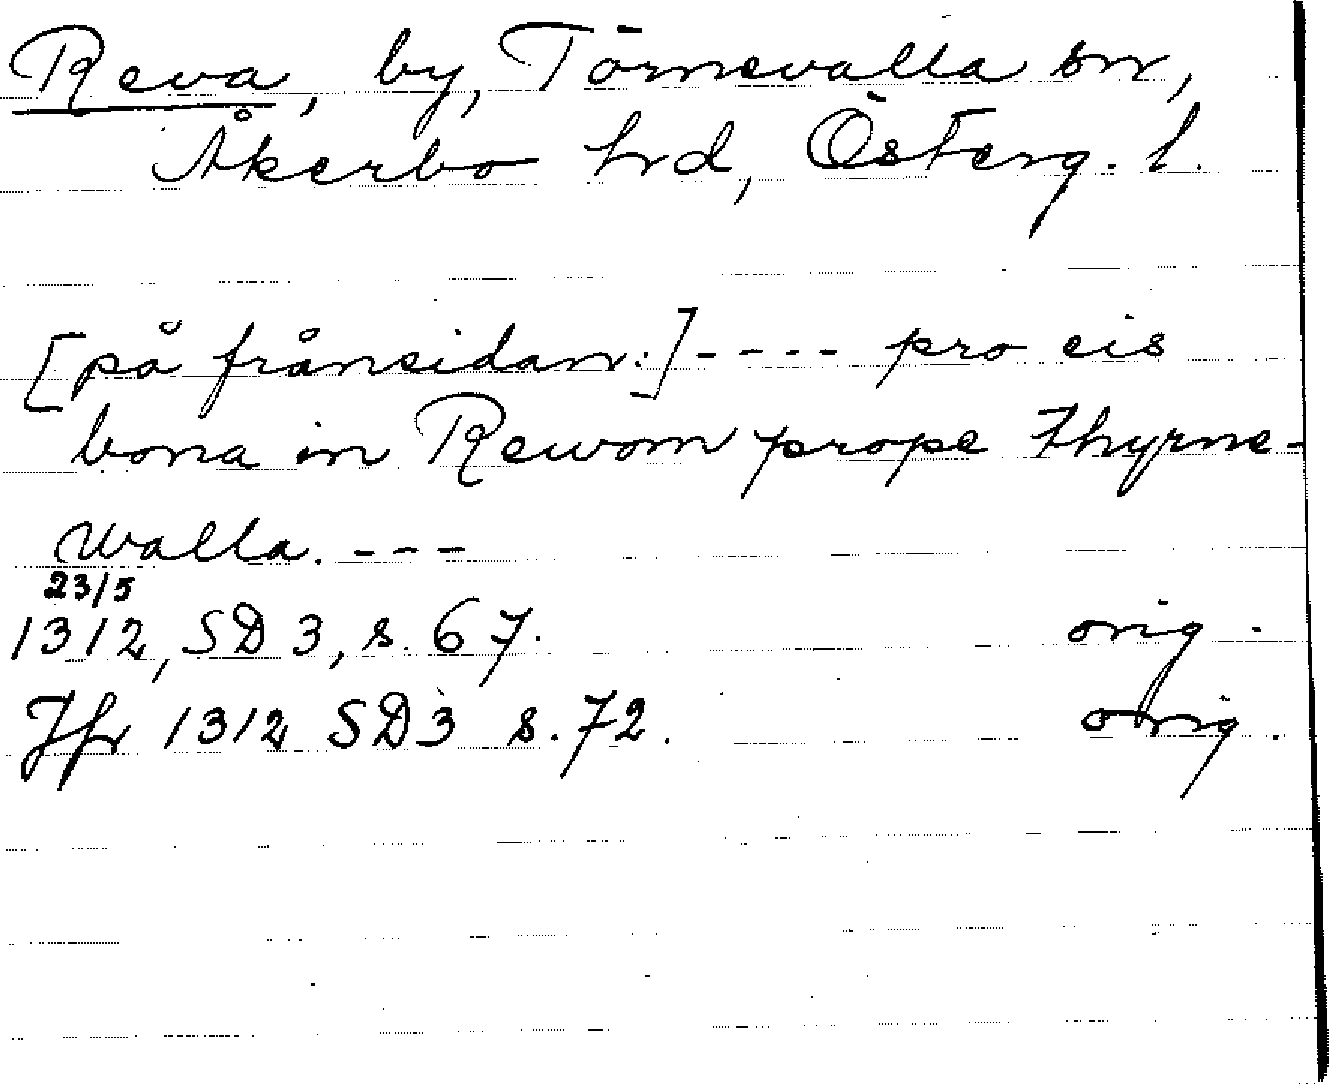 Reva, by, Törnevalla sn,
Åkerbo hrd, Österg. l.
[på frånsidan:] ---- pro eis
bona in Rewom prope thyrne-
walla. ---
23/5
1312, SD 3, s. 67. orig.
Jfr 1312 SD 3 s. 72. orig.